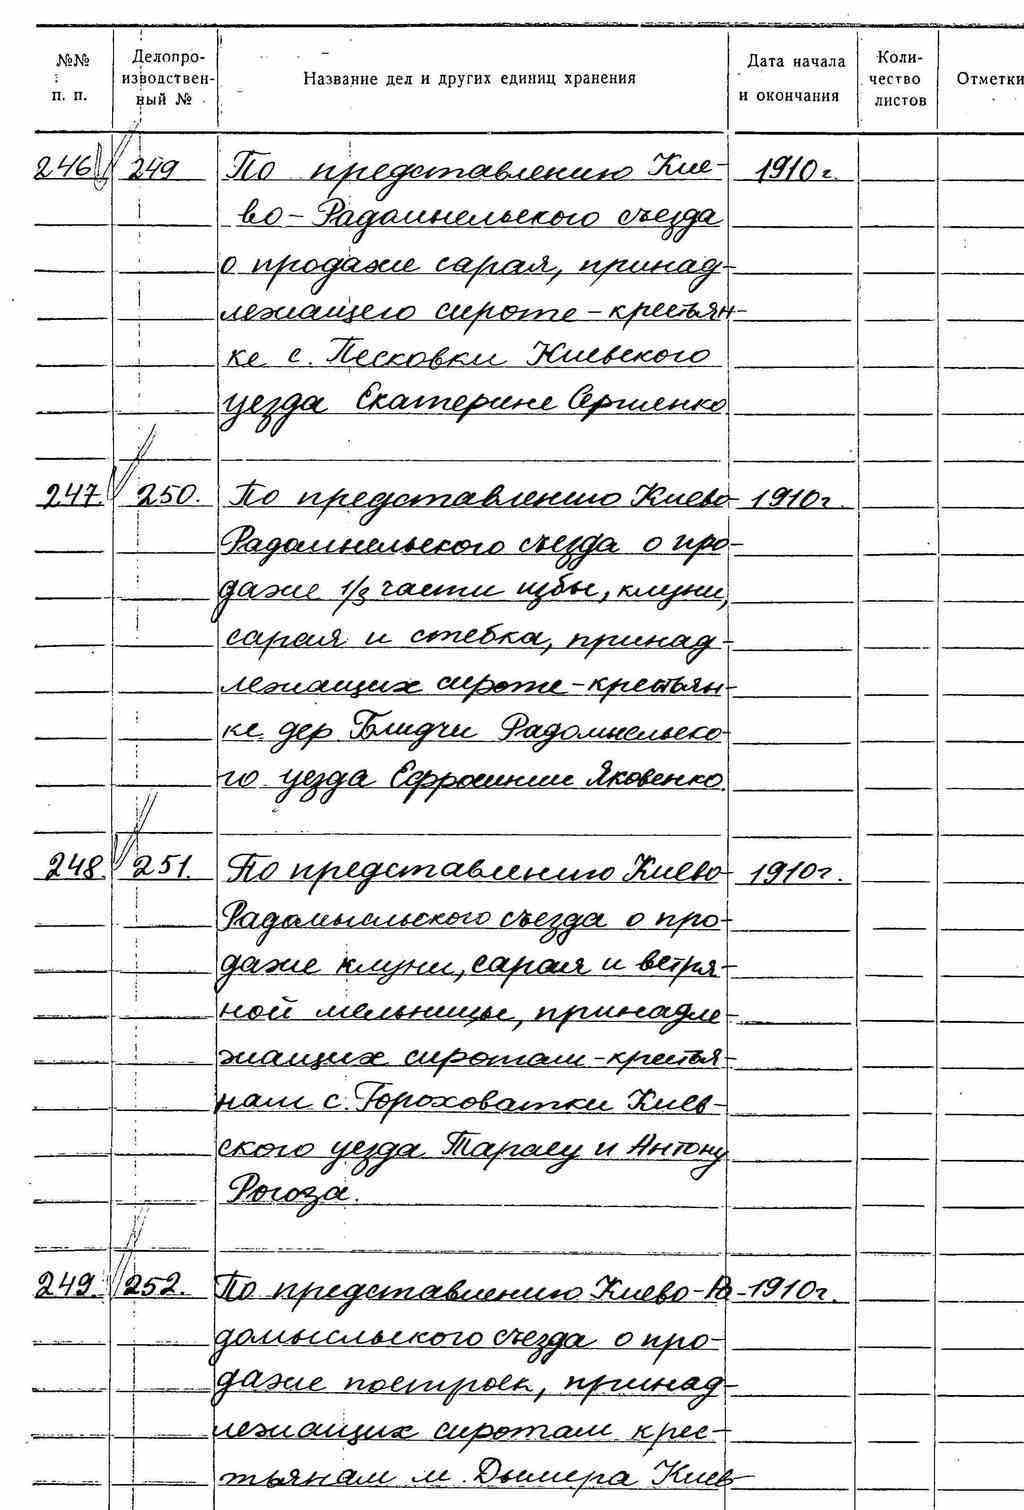 №№ п. п. Делопроизводственный № Название дел и других единиц хранения Дата начала и окончания Количество листов Отметки
246 249 По представлению Кие- 1910г.
во-Радомысльского съезда
о продаже сарая, принад-
лежащего сироте-крестьян-
ке с. Песковки Киевского
уезда Екатерине Сергиенко
247. 250. По представлению Киево- 1910г.
Радомысльского съезда о про-
даже 1/3 части избы, клуни,
сарая и стебка, принад-
лежащих сироте-крестьян-
ке дер. Блидчи Радомысльско-
го уезда Ефросинии Яковенко.
248. 251. По представлению Киево- 1910г.
Радомысльского съезда о про-
даже клуни, сарая и ветря-
ной мельницы, принадле-
жащих сиротам-крестья-
нам с. Гороховатки Киев-
ского уезда Тарасу и Антону
Рогоза.
249. 252. По представлению Киево-Ра- 1910г.
домысльского съезда о про-
даже построек, принад-
лежащих сиротам крес-
тьянам м. Дымера Киев-